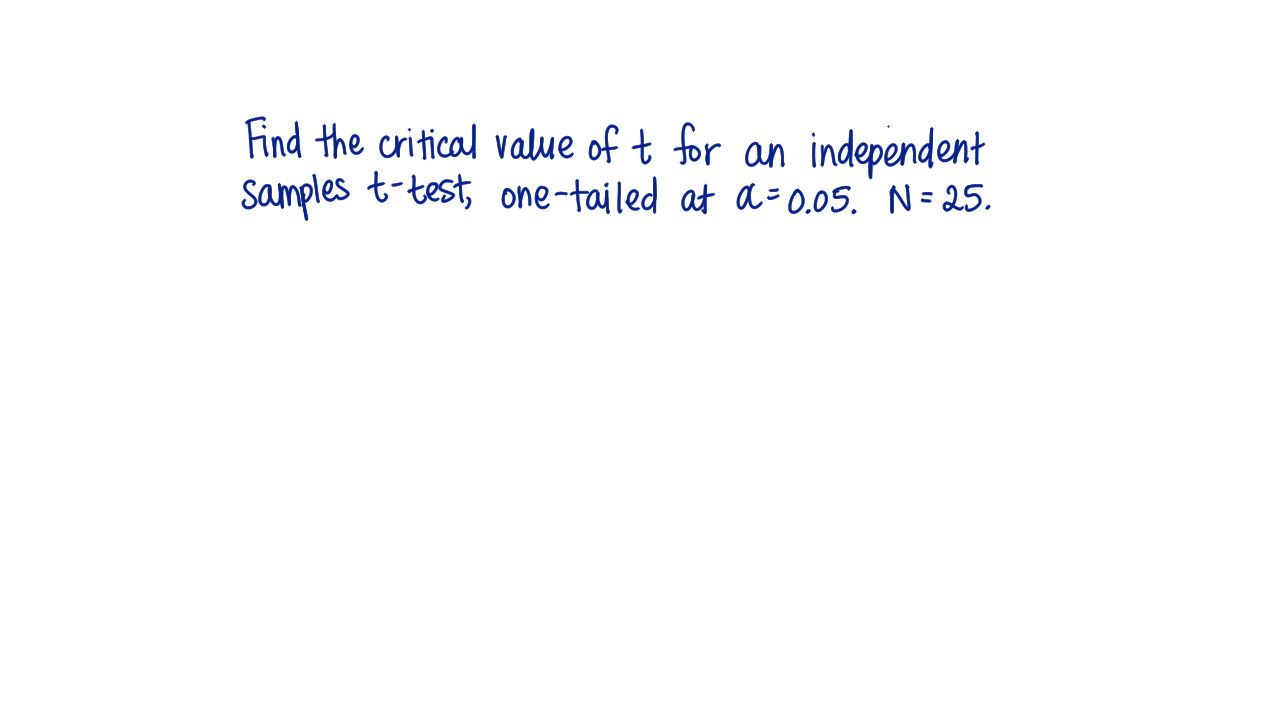 Find the critical value of t for an independent
samples t-test, one-tailed at α=0.05. N=25.